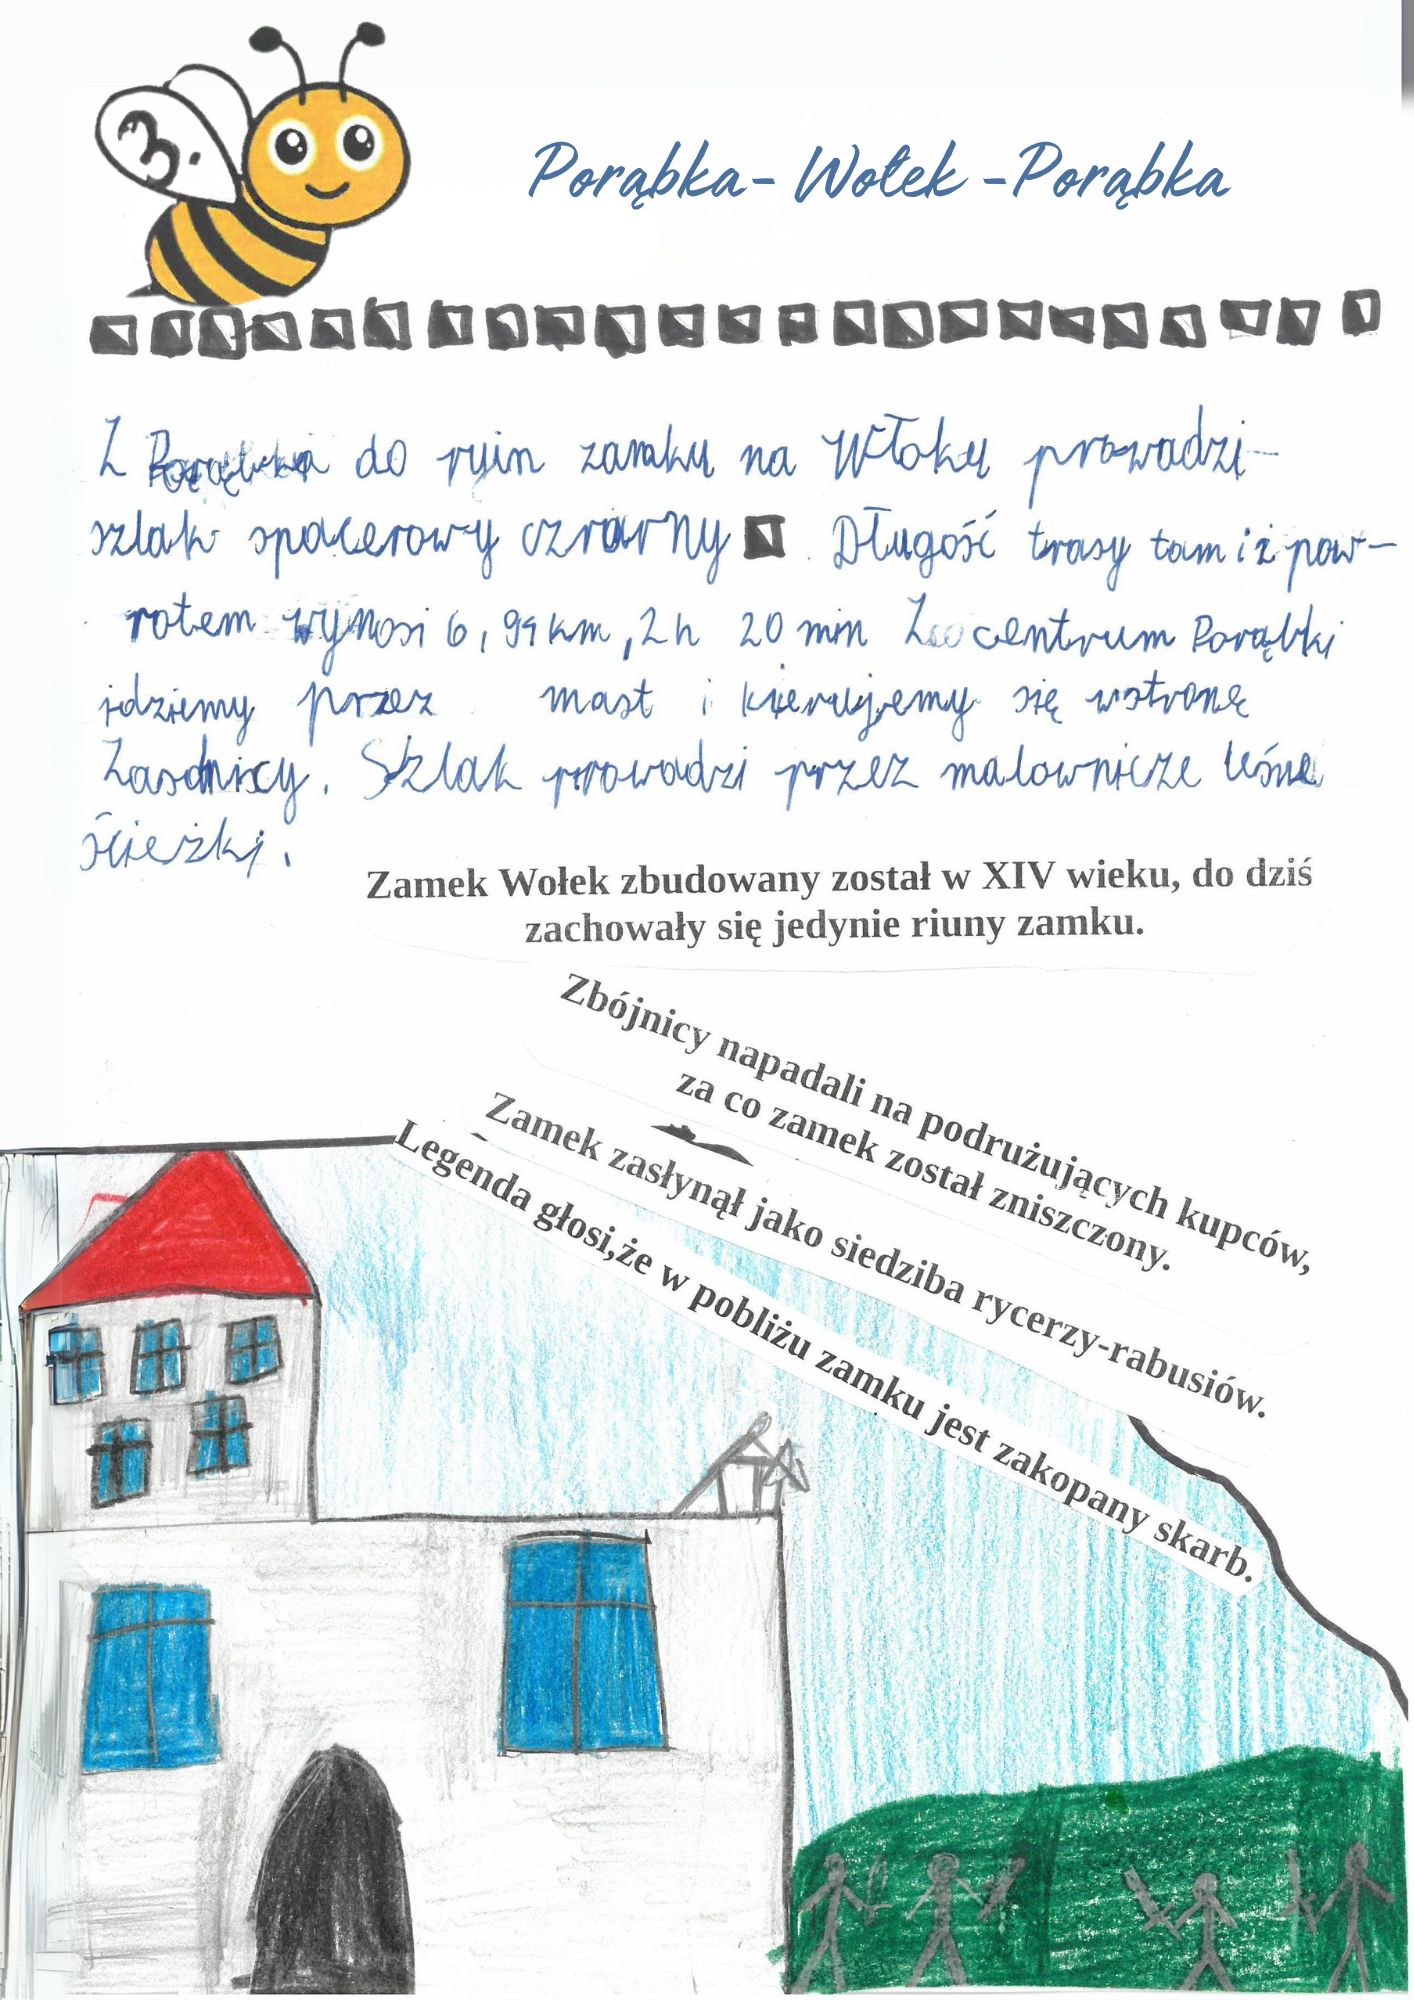 3.
Porąbka- Wołek -Porąbka
Z Porąbki do ruin zamku na Włoku prowadzi-
szlak spacerowy czrarny . Długość trasy tam i z pow-
rotem wynosi 6,99km, 2h 20 min Z centrum Porąbki
idziemy przez mast i kierujemy się wstronę
Zasolnicy. Szlak prowadzi przez malownicze leśne
ścieżki.
Zamek Wołek zbudowany został w XIV wieku, do dziś
zachowały się jedynie riuny zamku.
Zbójnicy napadali na podrużujących kupców,
za co zamek został zniszczony.
Zamek zasłynął jako siedziba rycerzy-rabusiów.
Legenda głosi,że w pobliżu zamku jest zakopany skarb.